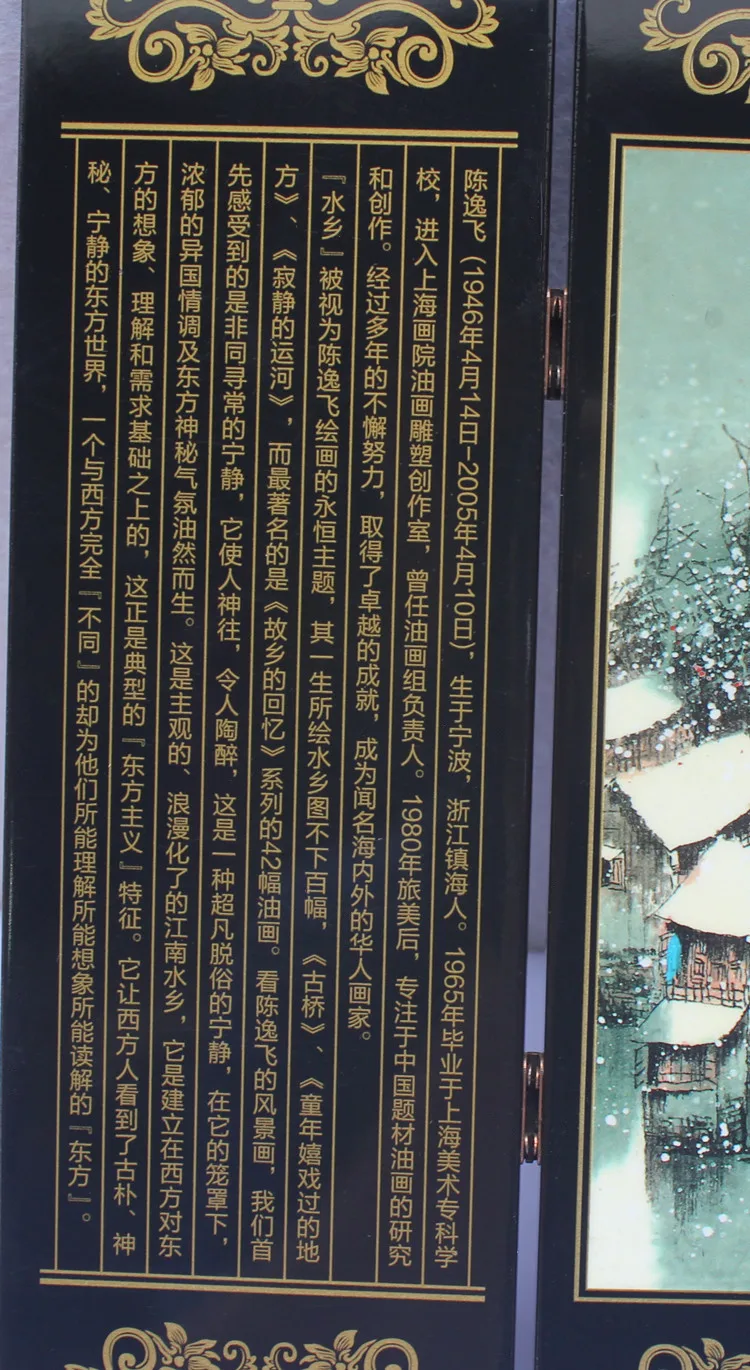 陈逸飞（1946年4月14日-2005年4月10日），生于宁波，浙江镇海人。1965年毕业于上海美术专科学
校，进入上海画院油画雕塑创作室，曾任油画组负责人。1980年旅美后，专注于中国题材油画的研究
和创作。经过多年的不懈努力，取得了卓越的成就，成为闻名海内外的华人画家。
『水乡』被视为陈逸飞绘画的永恒主题，其一生所绘水乡图不下百幅，《古桥》、《童年嬉戏过的地
方》、《寂静的运河》，而最著名的是《故乡的回忆》系列的42幅油画。看陈逸飞的风景画，我们首
先感受到的是非同寻常的宁静，它使人神往，令人陶醉，这是一种超凡脱俗的宁静，在它的笼罩下，
浓郁的异国情调及东方神秘气氛油然而生。这是主观的、浪漫化了的江南水乡，它是建立在西方对东
方的想象、理解和需求基础之上的，这正是典型的『东方主义』特征。它让西方人看到了古朴、神
秘、宁静的东方世界，一个与西方完全『不同』的却为他们所能理解所能想象所能读解的『东方』。